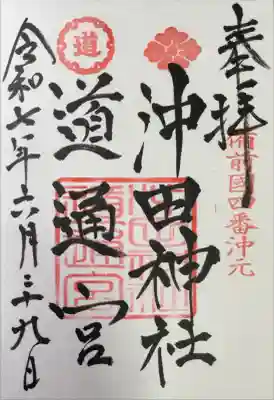 奉拝
備前國四番沖元
沖田神社
道通宮
道
令和七年六月二十九日